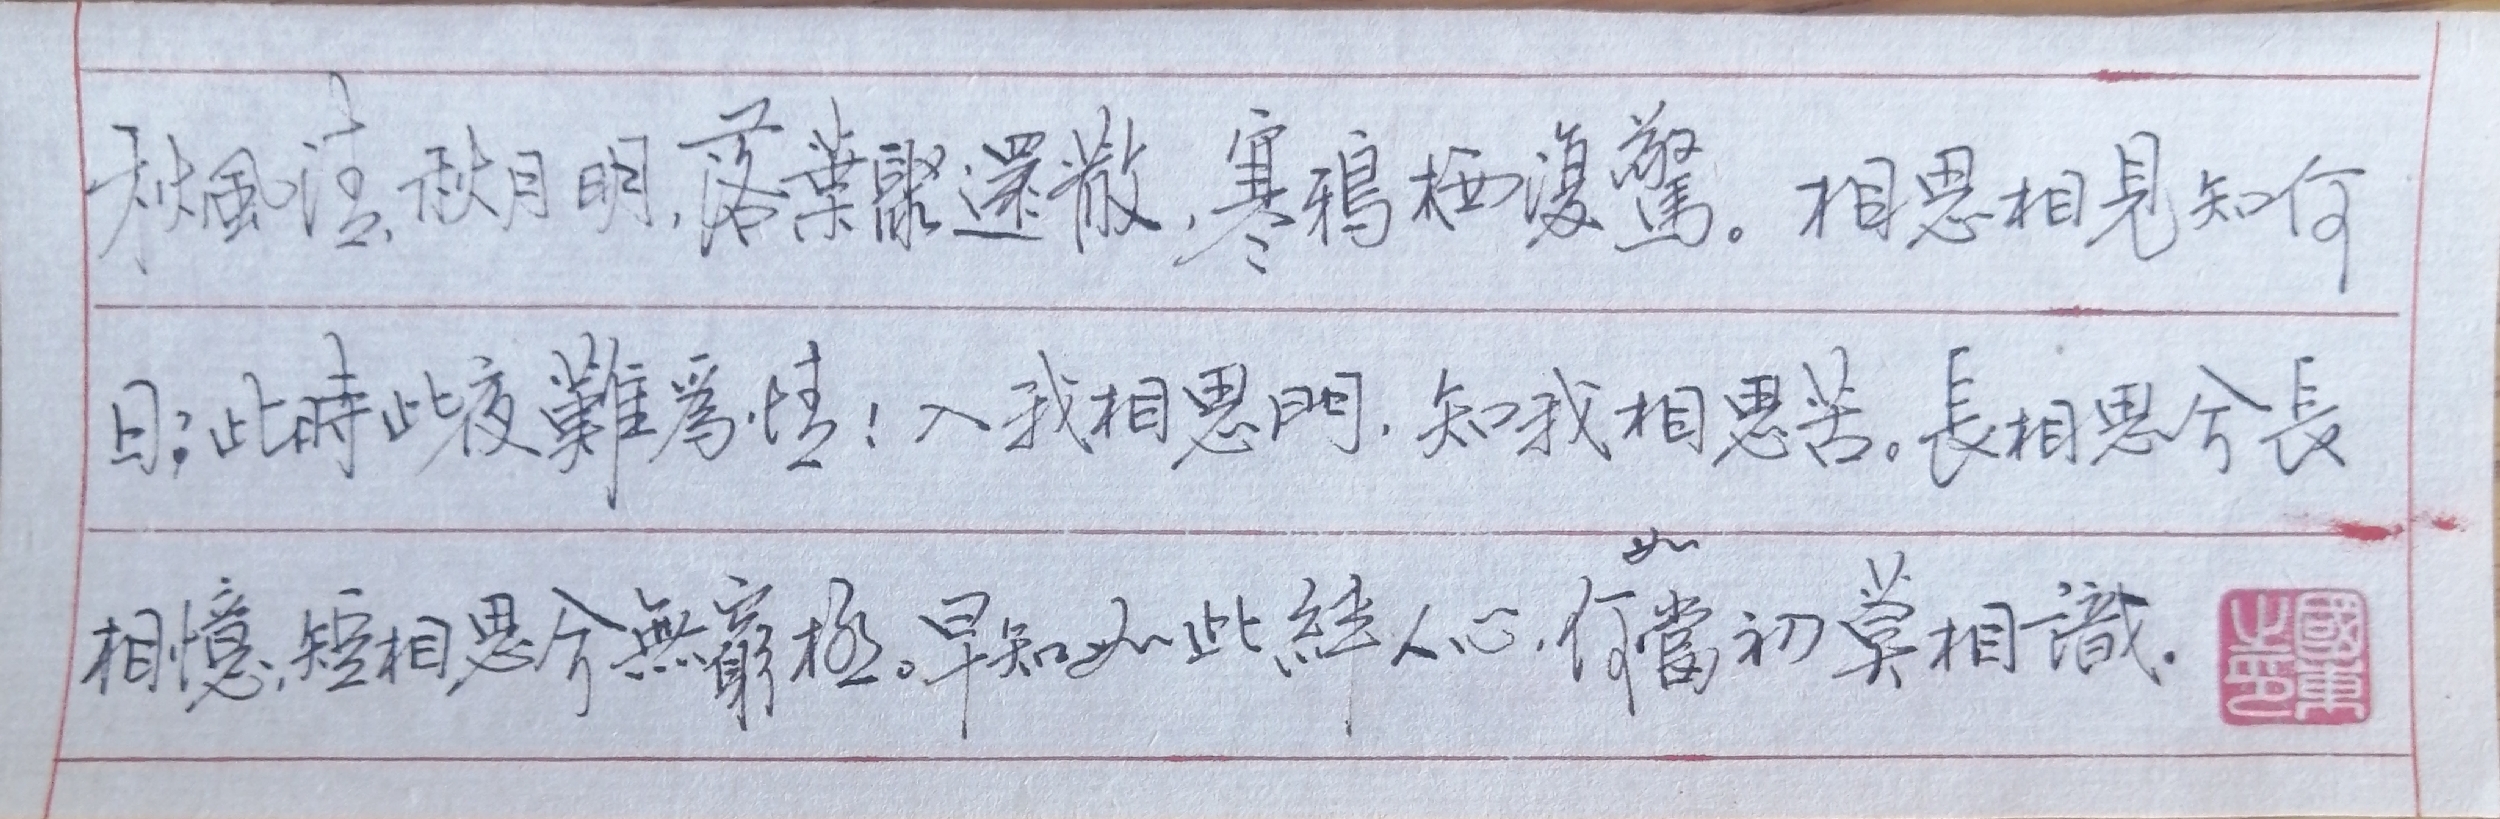 秋風清,秋月明,落葉聚還散,寒鴉栖復驚。相思相見知何
日;此時此夜難爲情!入我相思門,知我相思苦。長相思兮長
相憶,短相思兮無窮極。早知如此絆人心,何如當初莫相識.